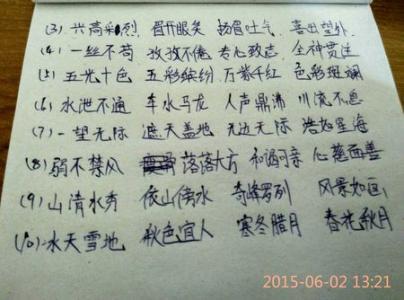 (3). 兴高采烈 眉开眼笑 扬眉吐气 喜出望外
(4). 一丝不苟 孜孜不倦 专心致志 全神贯注
(5) 五光十色 五彩缤纷 万紫千红 色彩斑斓
(6) 水泄不通 车水马龙 人声鼎沸 川流不息
(7) 一望无际 遮天盖地 无边无际 浩如星海
(8) 弱不禁风 落落大方 和谒可亲 心慈面善
(9) 山清水秀 依山傍水 奇峰罗列 风景如画
(10) 冰天雪地 秋色宜人 寒冬腊月 春花秋月
2015-06-02 13:21